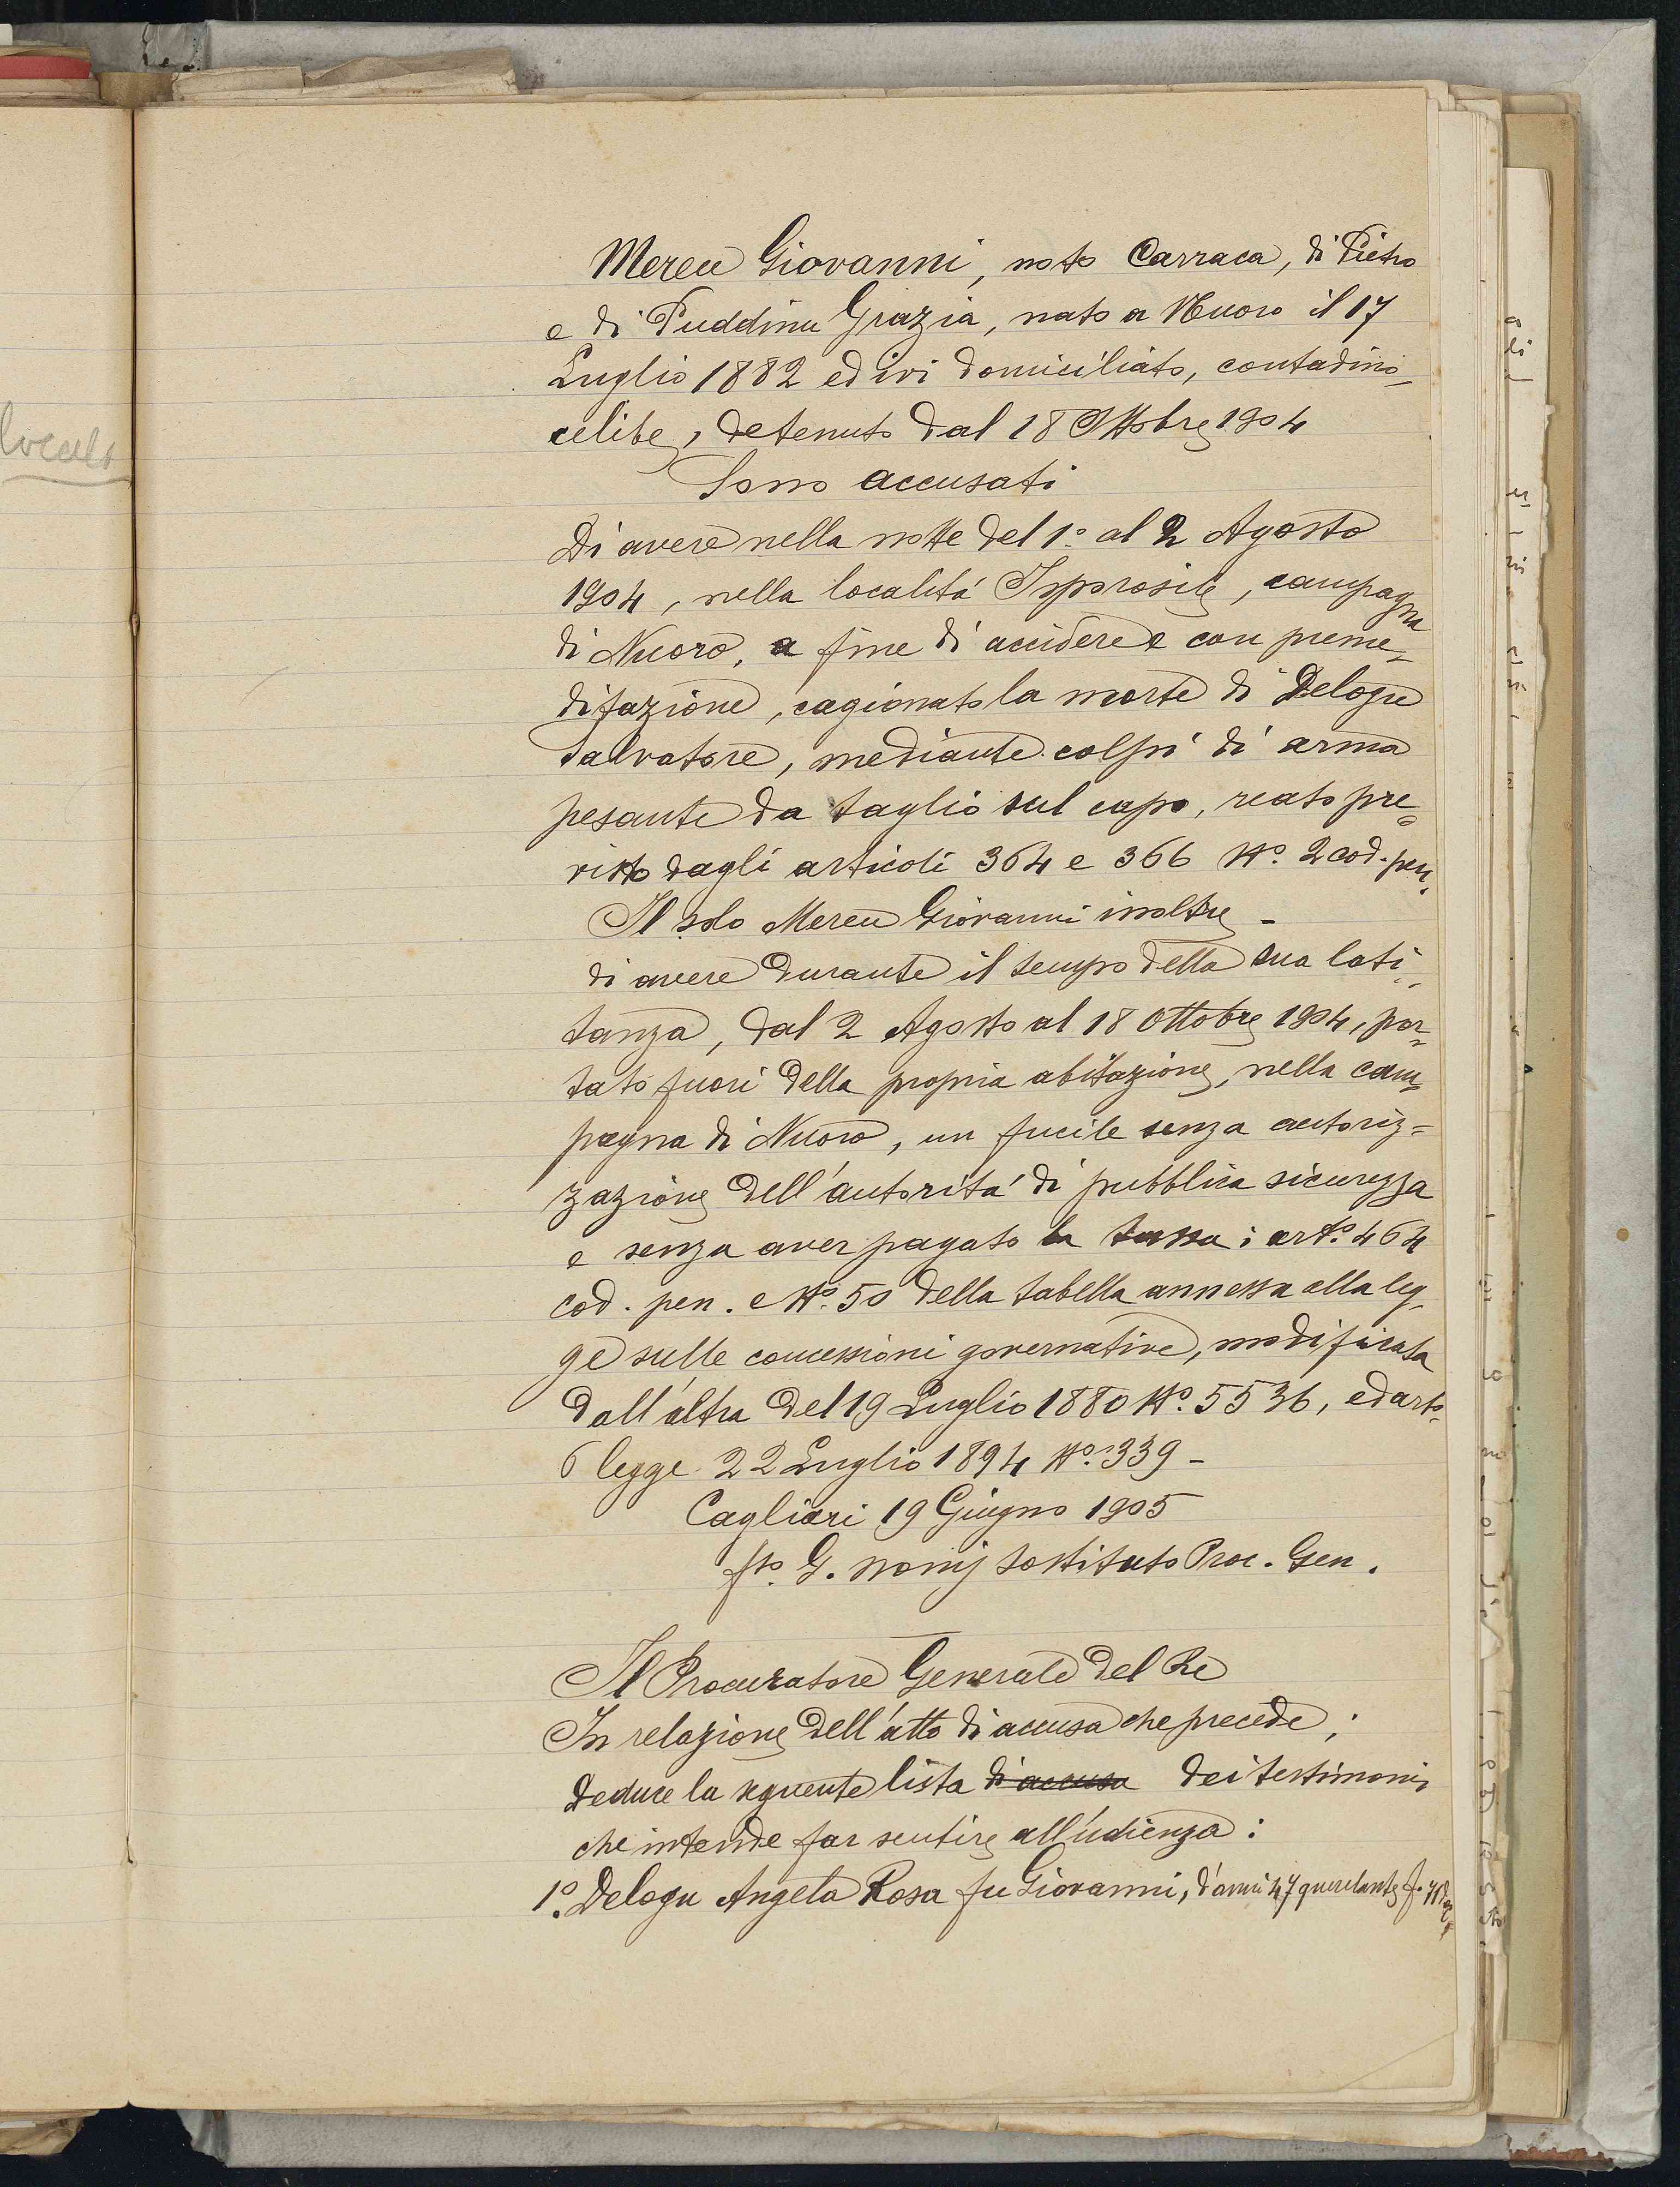 Mereu Giovanni, noto Carraca, di Pietro
e di Puddinu Grazia, nato a Nuoro il 17
Luglio 1882 ed ivi domiciliato, contadino,
celibe, detenuto dal 18 Ottobre 1904
Sono accusati
Di avere nella notte del 1º al 2 Agosto
1904, nella località Isporosile, campagna
di Nuoro, a fine di uccidere e con preme-
ditazione, cagionato la morte di Delogu
Salvatore, mediante colpi di arma
pesante da taglio sul capo, reato pre=
visto dagli articoli 364 e 366 Nº. 2 cod. pen.
Il solo Mereu Giovanni inoltre -
di avere durante il tempo della sua lati=
tanza, dal 2 Agosto al 18 Ottobre 1904, por=
tato fuori della propria abitazione, nella cam=
pagna di Nuoro, un fucile senza autoriz=
zazione dell'autorità di pubblica sicurezza
e senza aver pagato la tassa; artº. 464
cod. pen. e Nº. 50 della tabella annessa alla leg-
ge sulle concessioni governative, modificata
dall'altra del 19 Luglio 1880 Nº. 5536, ed artº.
6 legge 22 Luglio 1894 Nº. 339 -
Cagliari 19 Giugno 1905
fto. G. sostituto Proc. Gen.
Il Procuratore Generale del Re
In relazione dell'atto di accusa che precede;
Deduce la seguente lista di accusa dei testimoni
che intende far sentire all'udienza:
1º. Delogu Angela Rosa fu Giovanni, d'anni 47 querelante f.